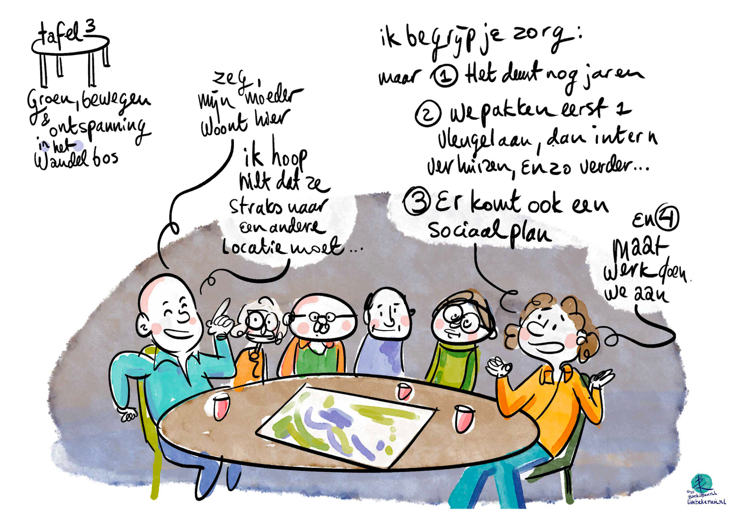 tafel 3
Groen, bewegen
& ontspanning
in het
Wandelbos
zeg,
mijn moeder
woont hier
ik hoop
niet dat ze
straks naar
een andere
locatie moet...
ik begrijp je zorg:
maar ① Het duurt nog jaren
② we pakken eerst 1
vleugel aan, dan intern
verhuizen, en zo verder...
③ Er komt ook een
sociaal plan
en ④
maat
werk doen
we aan